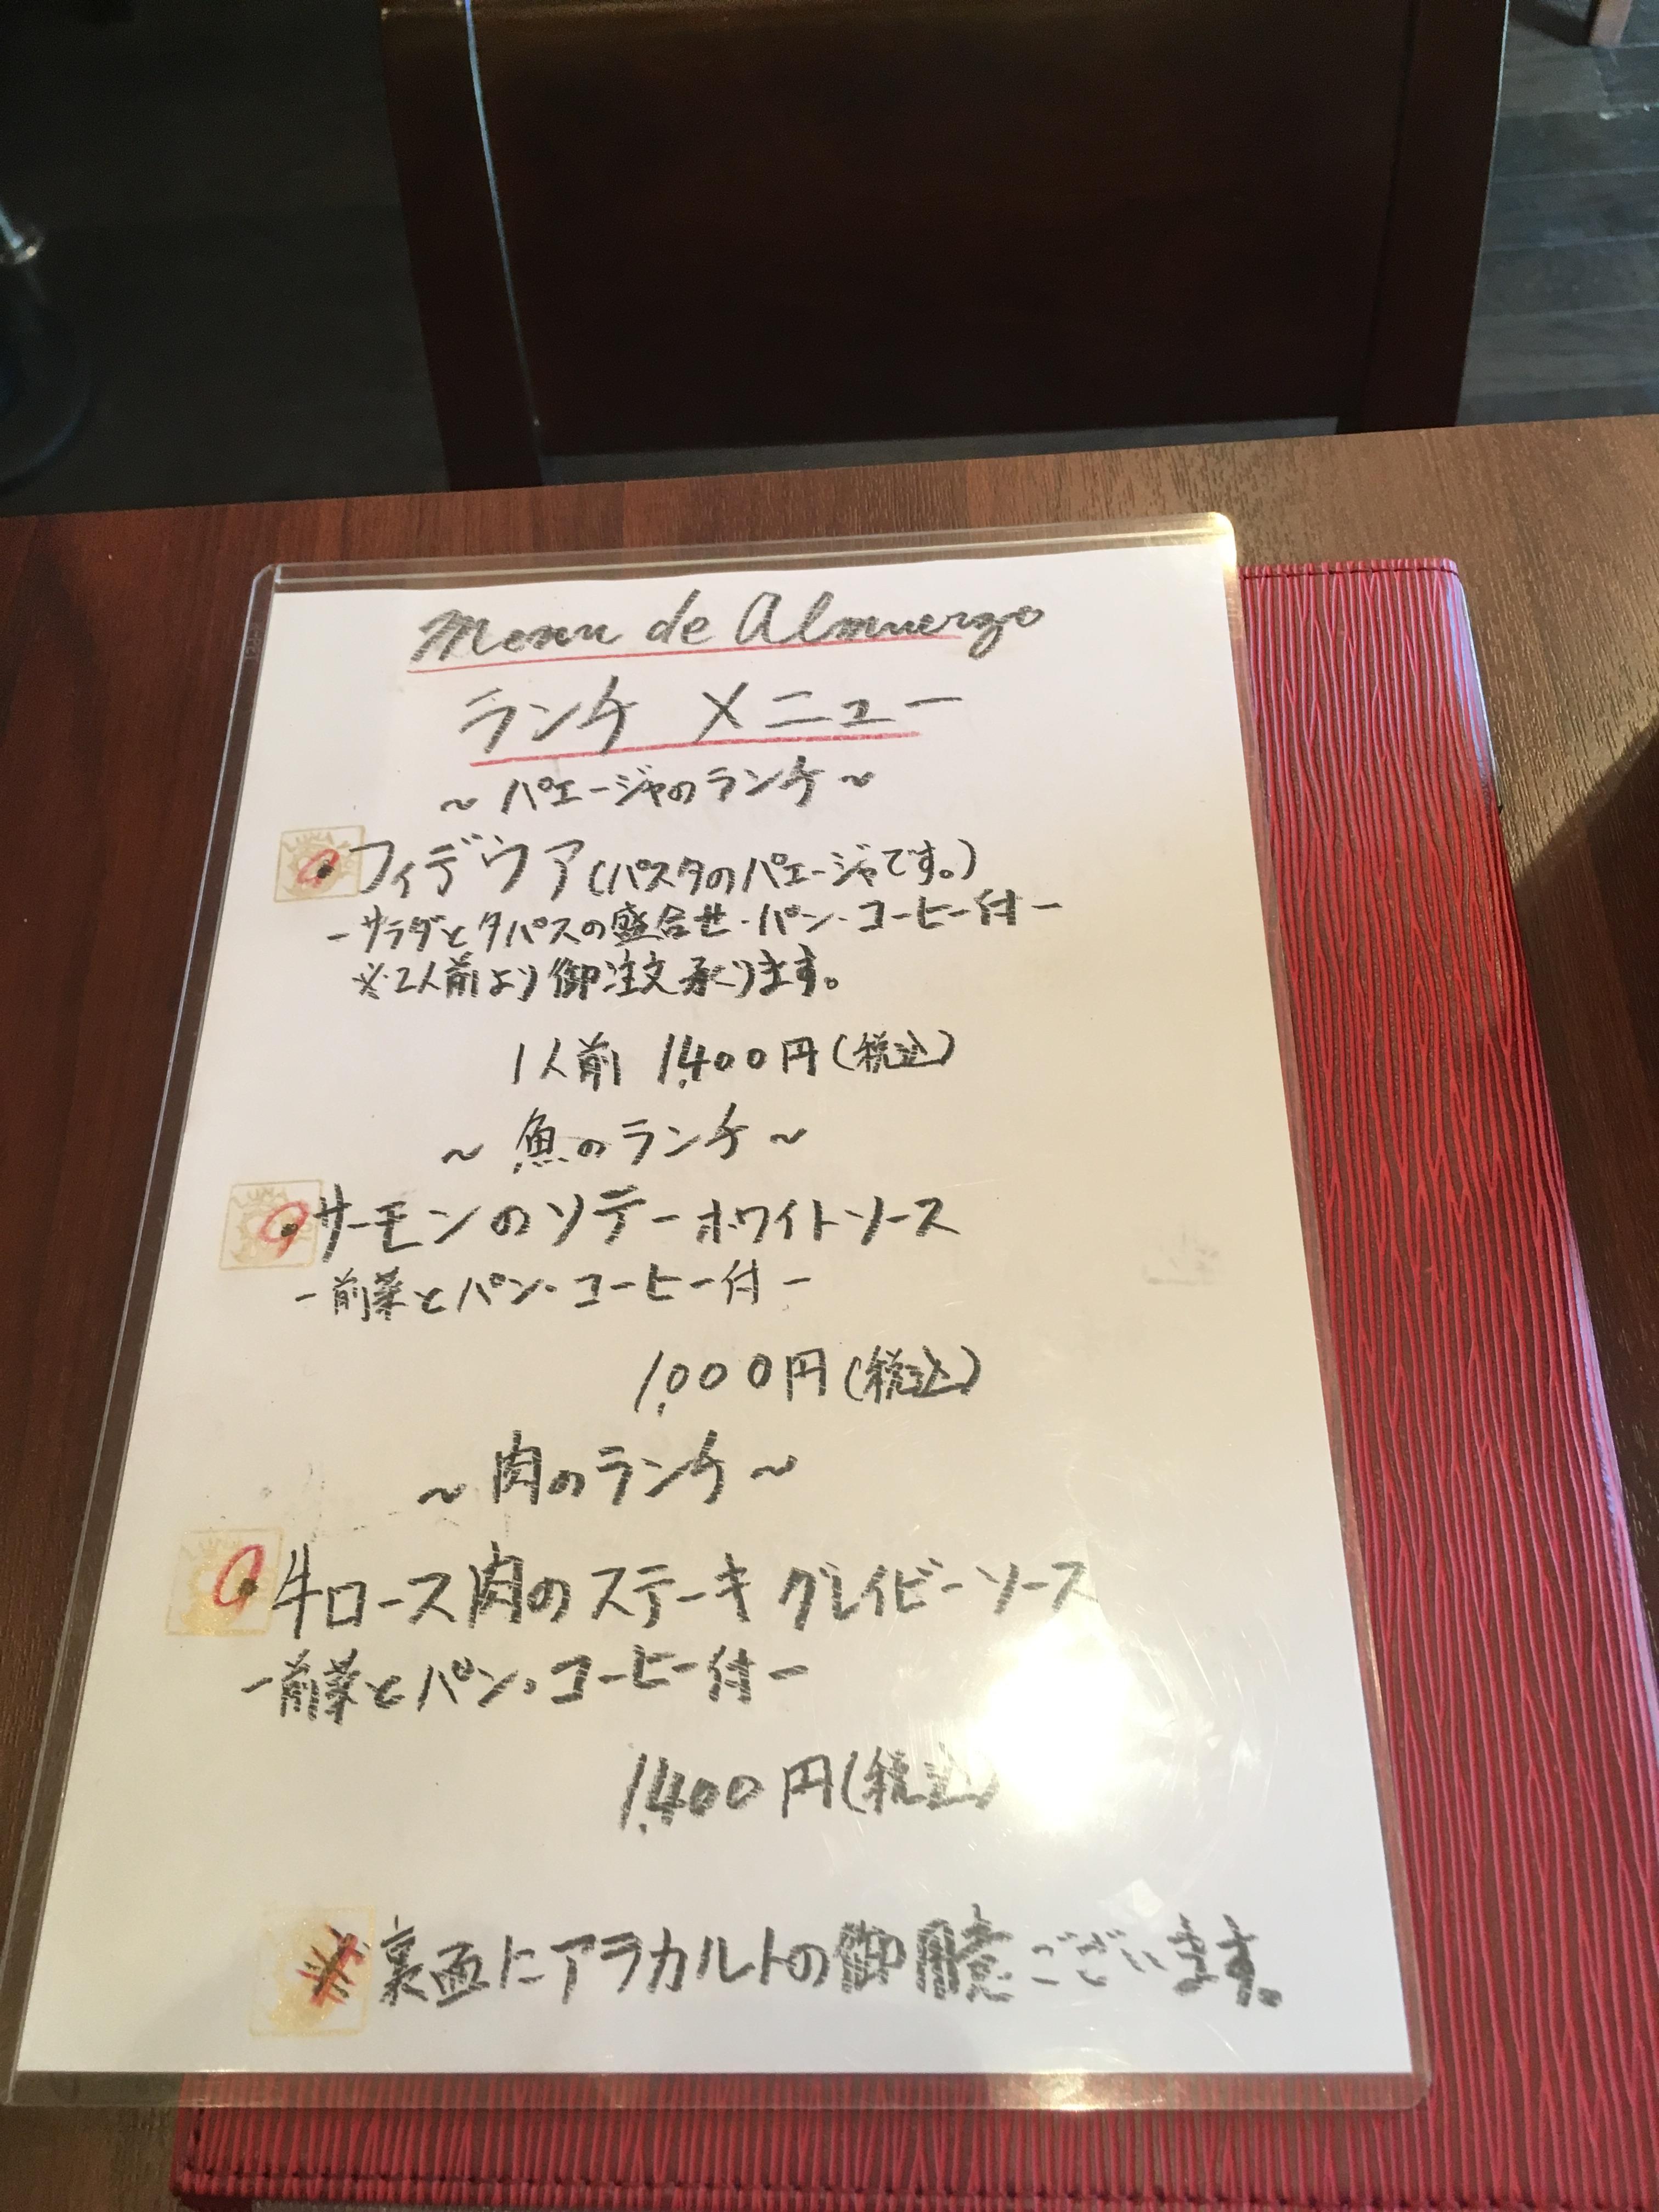 Menu de Almuerzo
ランチ メニュー
～パエージャのランチ～
フィデウア(パスタのパエージャです。)
-サラダとタパスの盛合せ・パン・コーヒー付-
※2人前より御注文承ります。
1人前 1,400円(税込)
～魚のランチ～
サーモンのソテーホワイトソース
-前菜とパン・コーヒー付-
1,000円(税込)
～肉のランチ～
牛ロース肉のステーキ グレイビーソース
-前菜とパン・コーヒー付-
1,400円(税込)
※裏面にアラカルトの御用意ございます。